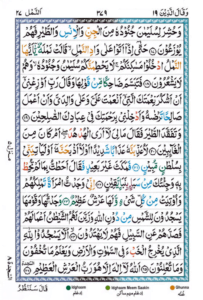 وَقَالَ الَّذِيْنَ ١٩ ٣٧٩ اَلنَّمْل ٢٧
وَحُشِرَ لِسُلَيْمٰنَ جُنُوْدُهٗ مِنَ الْجِنِّ وَالْاِنْسِ وَالطَّيْرِ فَهُمْ
يُوْزَعُوْنَ حَتّٰۤى اِذَاۤ اَتَوْا عَلٰى وَادِ النَّمْلِ قَالَتْ نَمْلَةٌ يّٰۤاَيُّهَا
النَّمْلُ ادْخُلُوْا مَسٰكِنَكُمْ لَا يَحْطِمَنَّكُمْ سُلَيْمٰنُ وَجُنُوْدُهٗ وَهُمْ
لَا يَشْعُرُوْنَ فَتَبَسَّمَ ضَاحِكًا مِّنْ قَوْلِهَا وَقَالَ رَبِّ اَوْزِعْنِيْۤ
اَنْ اَشْكُرَ نِعْمَتَكَ الَّتِيْۤ اَنْعَمْتَ عَلَيَّ وَعَلٰى وَالِدَيَّ وَاَنْ اَعْمَلَ
صَالِحًا تَرْضٰىهُ وَاَدْخِلْنِيْ بِرَحْمَتِكَ فِيْ عِبَادِكَ الصّٰلِحِيْنَ
وَتَفَقَّدَ الطَّيْرَ فَقَالَ مَا لِيَ لَاۤ اَرَى الْهُدْهُدَ اَمْ كَانَ مِنَ
الْغَآئِبِيْنَ لَاُعَذِّبَنَّهٗ عَذَابًا شَدِيْدًا اَوْ لَاۡاَذْبَحَنَّهٗۤ اَوْ لَيَاْتِيَنِّيْ
بِسُلْطٰنٍ مُّبِيْنٍ فَمَكَثَ غَيْرَ بَعِيْدٍ فَقَالَ اَحَطْتُّ بِمَا لَمْ تُحِطْ
بِهٖ وَجِئْتُكَ مِنْ سَبَاٍۭ بِنَبَاٍ يَّقِيْنٍ اِنِّيْ وَجَدْتُّ امْرَاَةً تَمْلِكُهُمْ
وَاُوْتِيَتْ مِنْ كُلِّ شَيْءٍ وَّلَهَا عَرْشٌ عَظِيْمٌ وَجَدْتُّهَا وَقَوْمَهَا
يَسْجُدُوْنَ لِلشَّمْسِ مِنْ دُوْنِ اللّٰهِ وَزَيَّنَ لَهُمُ الشَّيْطٰنُ اَعْمَالَهُمْ
فَصَدَّهُمْ عَنِ السَّبِيْلِ فَهُمْ لَا يَهْتَدُوْنَ اَلَّا يَسْجُدُوْا لِلّٰهِ
الَّذِيْ يُخْرِجُ الْخَبْءَ فِي السَّمٰوٰتِ وَالْاَرْضِ وَيَعْلَمُ مَا تُخْفُوْنَ
وَمَا تُعْلِنُوْنَ اللّٰهُ لَاۤ اِلٰهَ اِلَّا هُوَ رَبُّ الْعَرْشِ الْعَظِيْمِ
قَالَ سَنَنْظُرُ
Idghaam Idghaam Meem Saakin Ghunna